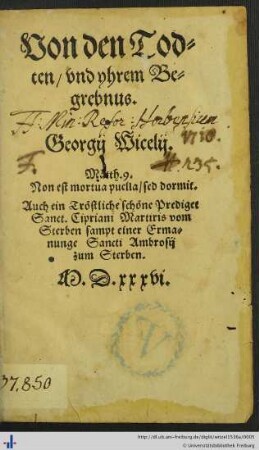 Von den Tod-
ten/ vnd yhrem Be-
grebnus.
Georgij Wicelij.
1710.
F.
# 235.
Math. 9.
Non est mortua puella/ sed dormit.
Auch ein Tröstliche schöne Prediget
Sanct. Cipriani Martiris vom
Sterben sampt einer Erma-
nunge Sancti Ambrosij
zum Sterben.
M. D. xxxvi.
37.850
http://dl.ub.uni-freiburg.de/diglit/witzel1536a/0005
© Universitätsbibliothek Freiburg